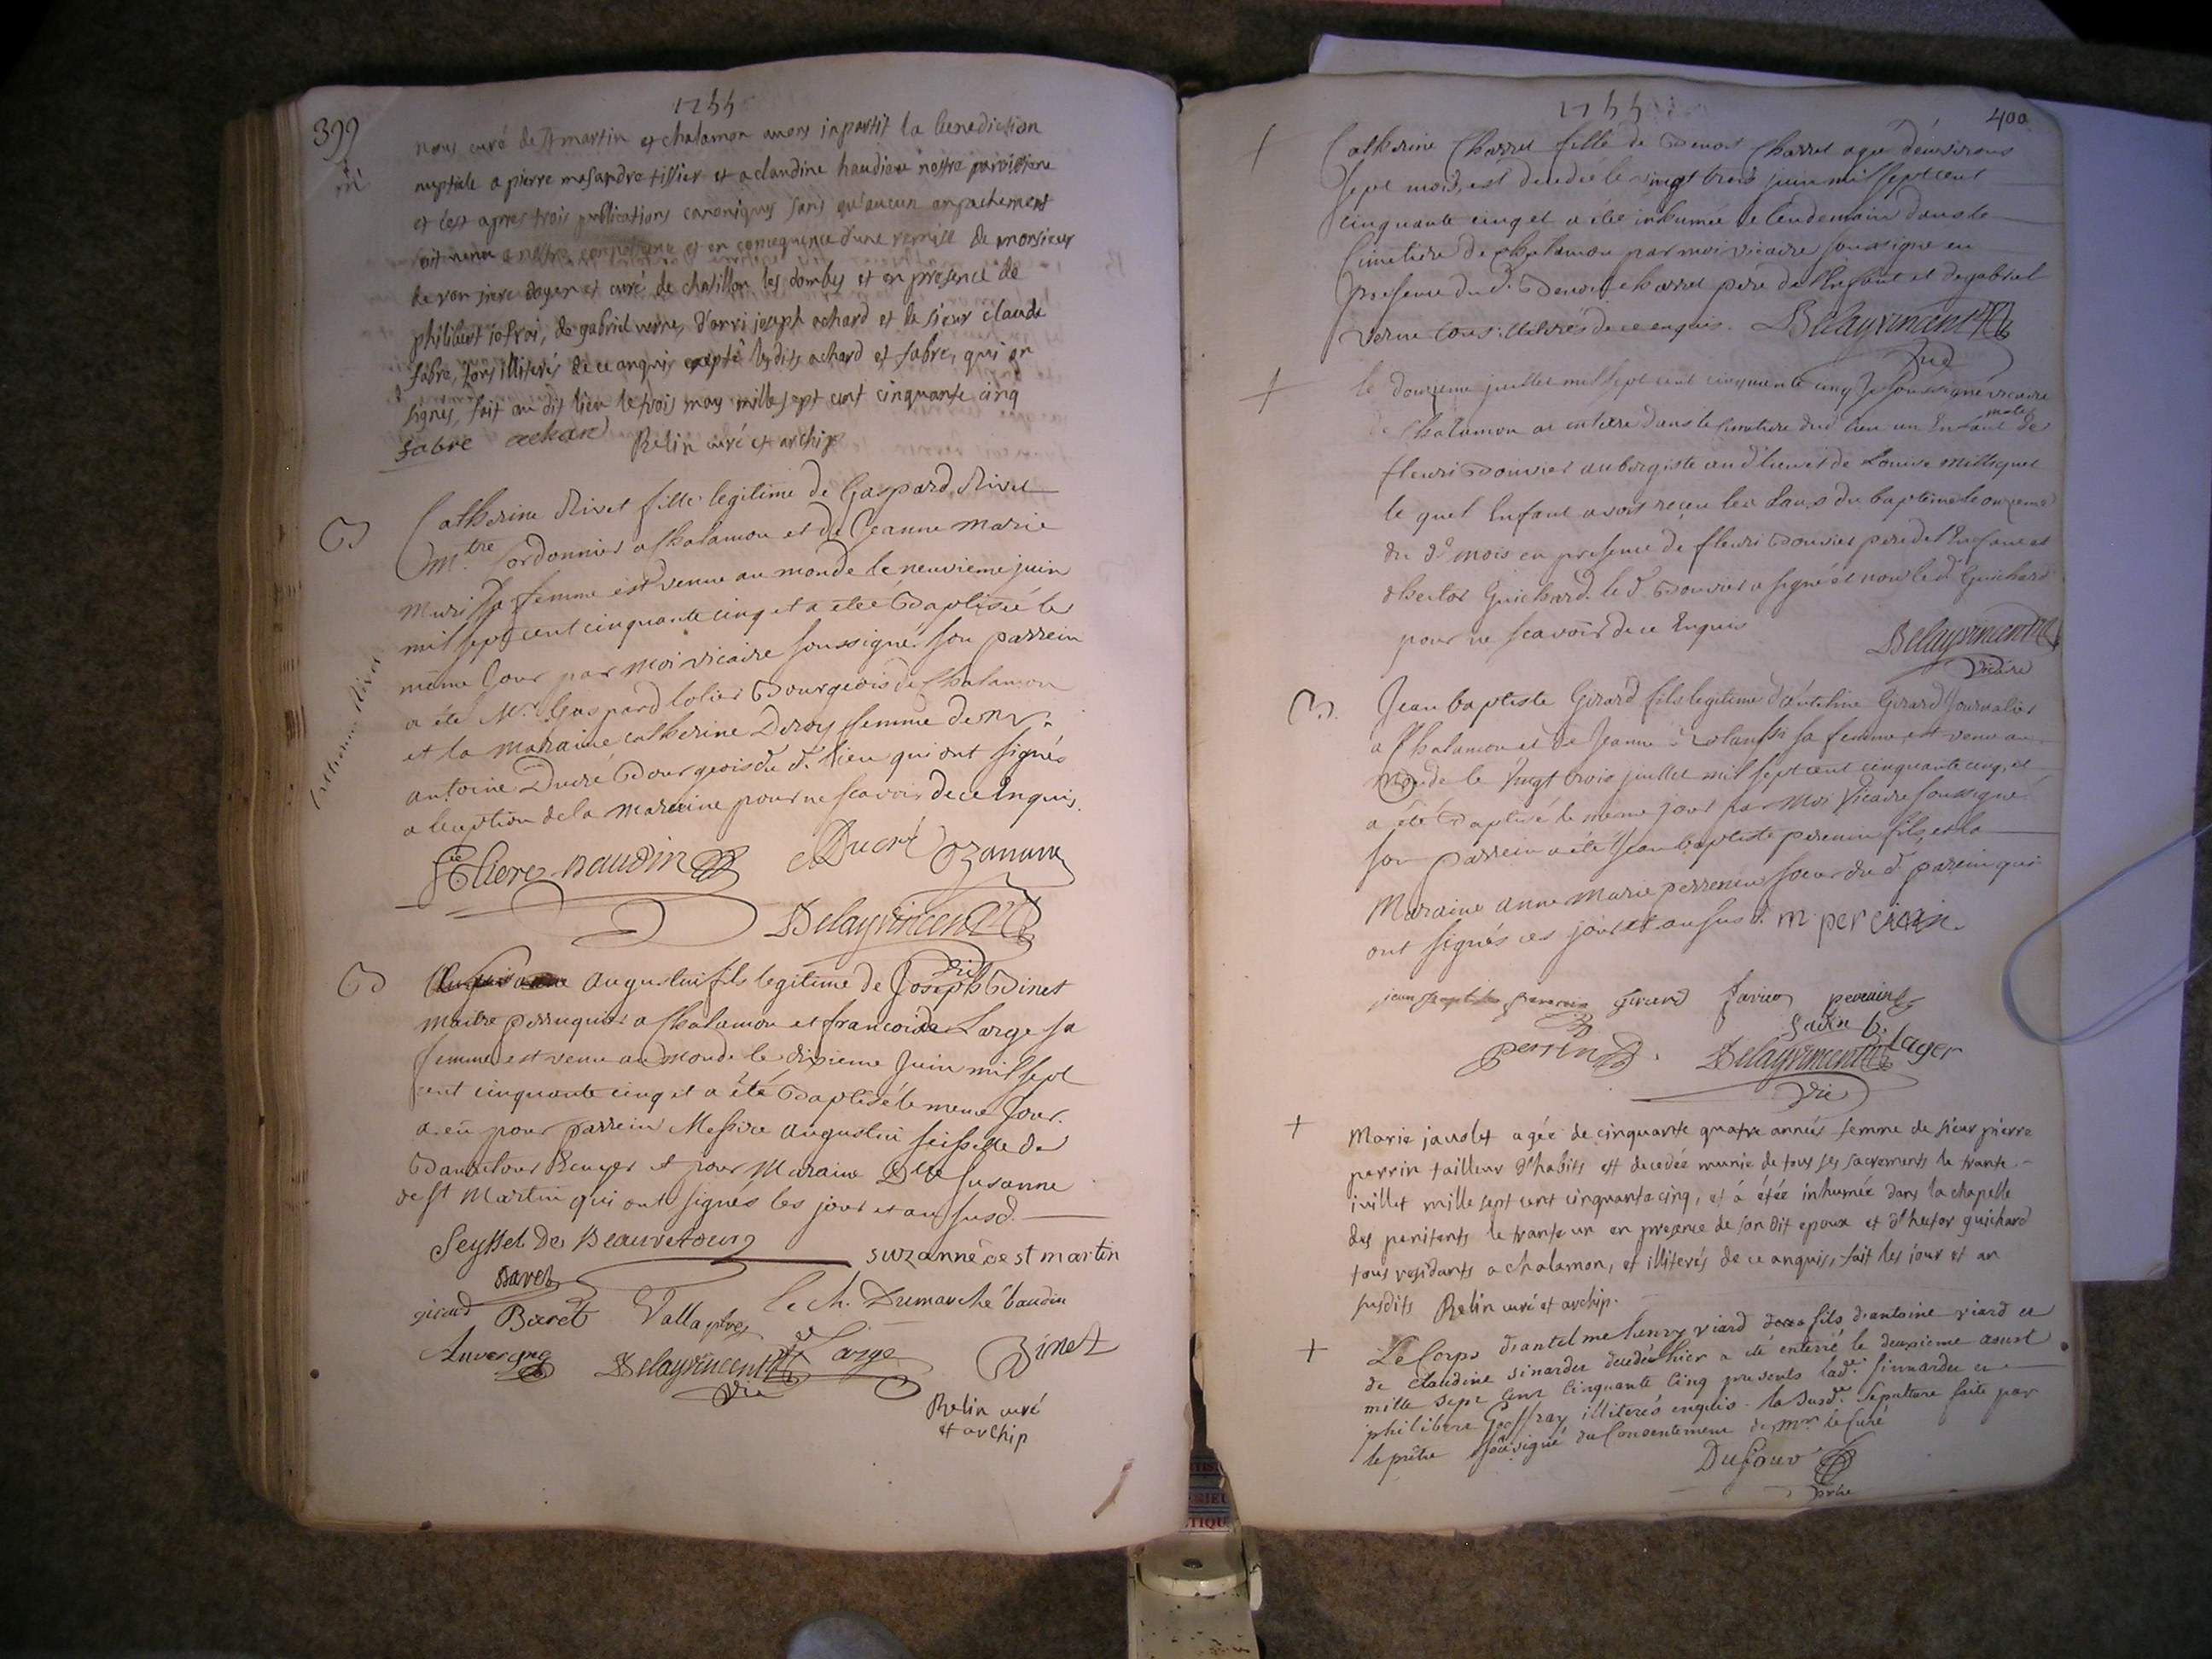 399
1755
m
nous curé de st martin et chalamon avons inpartit la benediction
nuptiale a pierre tissier et a claudine nostre paroissiene
et cest apres trois publications canoniques sans qu'aucun anpachement
soit venu a nostre connoissance et en consequence d'une remise de monsieur
doyen et curé de chatillon les dombes et en presence de
philibert jofroi, de gabriel verne, d'anri joseph achard et le sieur claude
fabre, tous illiterés de ce anquis excepté lesdits achard et fabre, qui on
signés, fait au dit lieu le trois may mille sept cent cinquante cinq
fabre achard Relin curé et archip
B
Catherine Rivet
Catherine Rivet fille legitime de Gaspard Rivet
m.tre Cordonnier a Chalamon et de Jeanne Marie
sa femme est venue au monde le neuvieme juin
mil sept cent cinquante cinq et a etée Baptisée le
même Jour par moi vicaire soussigné. son parrein
a été Mr. Gaspard Bourgeois de Chalamon
et la maraine catherine Deroy femme de mr.
antoine Ducré Bourgeois du d. lieu qui ont signés
a lexeption de la maraine pour ne scavoir de ce Enquis.
Baudin Ducré
Delayvincent
vic
B
Augustin fils legitime de Joseph Binet
maitre perruquier a Chalamon et francoise Large sa
femme est venu au monde le dixieme Juin mil sept
cent cinquante cinq et a été Baptisé le meme Jour.
a eu pour parrein Messire augustin seisselle de
et pour Maraine Dlle susanne
de st Martin qui ont signés les jour et an susd.
Seyssel de Beauretour
suzanne de st martin
le ch. Dumarché baudin
girard Baret
Delayvincent Large Binet
vic
Relin curé
et archip
1755
400
+
Catherine Charrel fille de Benoit Charrel agée d'environs
sept mois, est decedée le vingt trois juin mil sept cent
cinquante cinq et a étée inhumée le lendemain dans le
Cimetiere de chalamon par moi vicaire soussigné en
presence du d. Benoit charrel pere de l'Enfant et de gabriel
verne tous illiterés de ce enquis. Delayvincent
vic
+
le douzieme juillet mil sept cent cinquante cinq Je soussigné vicaire
de Chalamon ai enterré dans le cimetiere dud lieu un Enfant male de
fleuri Bouvier aubergiste aud lieu et de Louise
le quel Enfant avoit reçeu les Eaux du baptême le onzieme
du d. mois en presence de fleuri Bouvier pere de l'Enfant et
d'hector Guichard. le d. Bouvier a signé et non le d. Guichard
pour ne scavoir de ce Enquis
Delayvincent
vicaire
B.
Jean baptiste Girard fils legitime d'antelme Girard Journalier
a Chalamon et de Jeanne sa femme, est venu au
monde le vingt trois juillet mil sept cent cinquante cinq, et
a été Baptisé le meme jour par Moi Vicaire soussigné
son parrein a été Jean baptiste perenin fils, et la
Maraine anne Marie perrenin soeur du d. parein qui
ont signés ces jour et an susd.
girard
perrin Delayvincent
vic
+
Marie jauolet agée de cinquante quatre années femme de sieur pierre
perrin tailleur d'habits est decedée munie de tous ses sacrements le trante
iuillet mille sept cent cinquante cinq, et á étée inhumée dans la chapelle
des penitents le trante un en presence de son dit epoux et d'hector guichard
tous residants a chalamon, et illiterés de ce anquis, fait les jour et an
susdits Relin curé et archip.
+
Le Corps d'antelme henry viard fils d'antoine viard et
de claudine sinardet decedé hier a été enterré le deuxieme aoust
mille sept cent Cinquante Cinq presents lad.e sinnardet et
philibert Geoffray illiterés enquis. la susd.e sepulture faite par
le prêtre soussigné du Consentement de mr. le Curé
Dufour
prtre